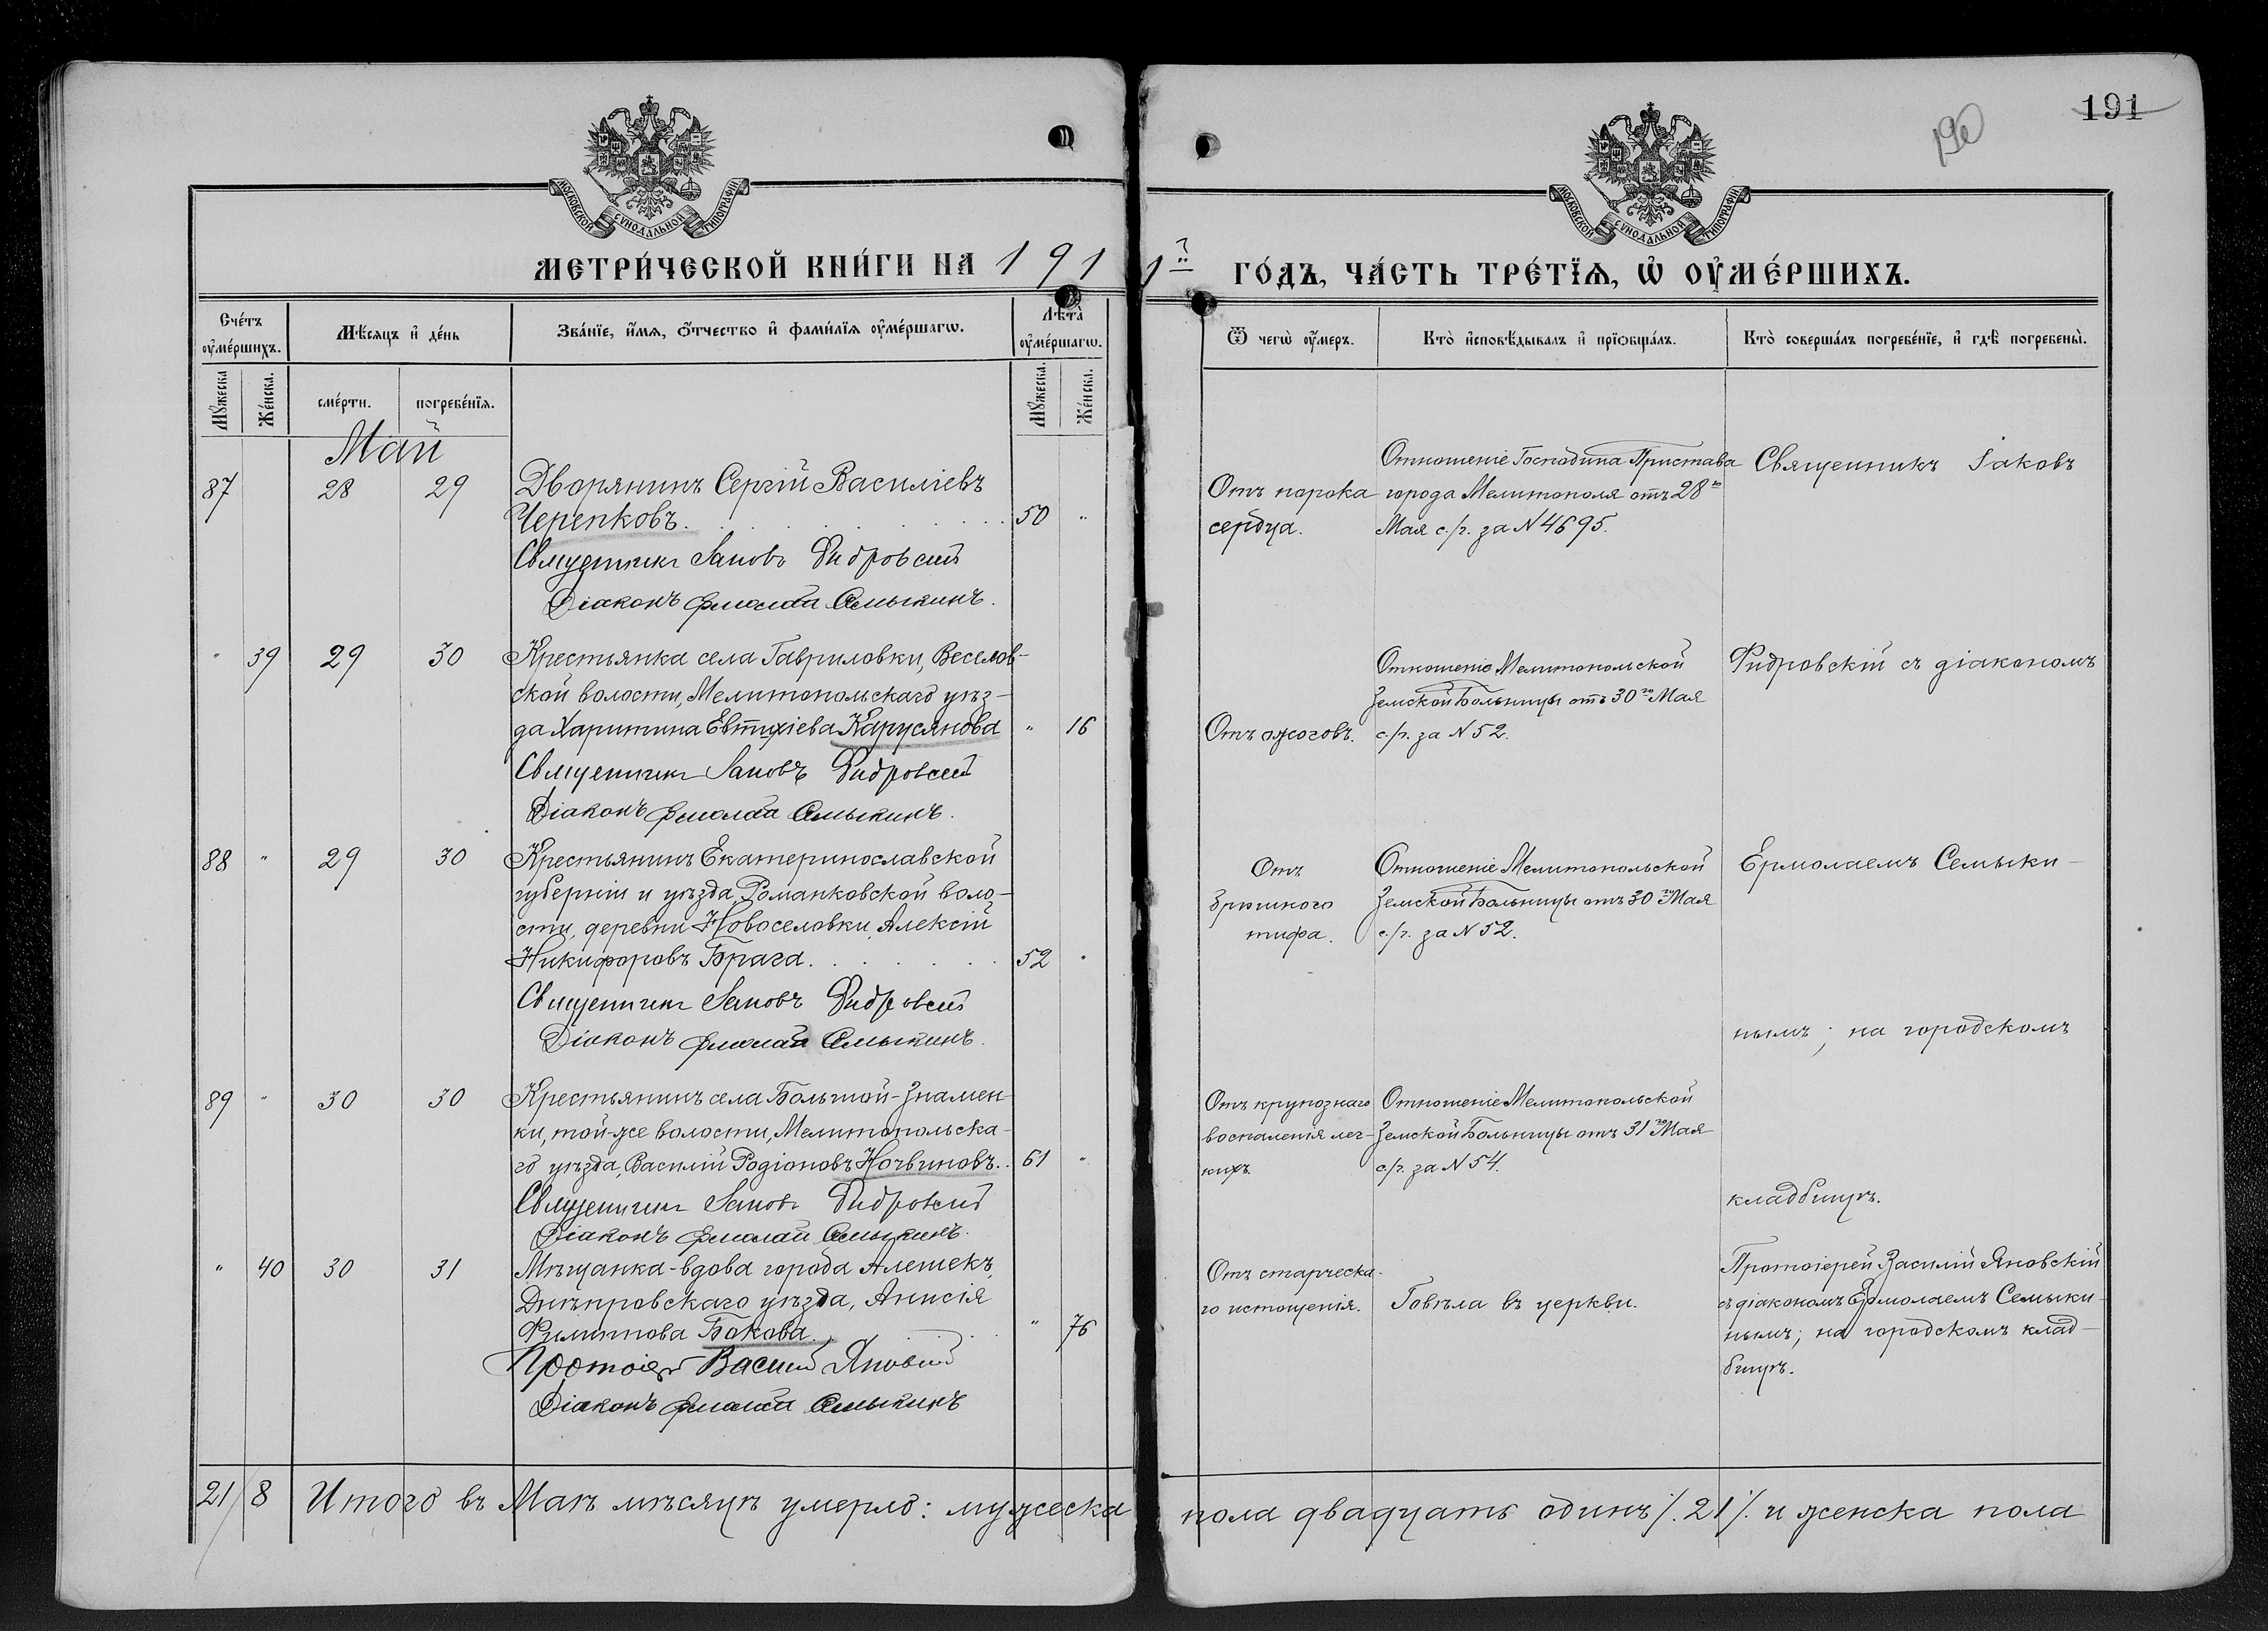 190
191
МОСКОВСКОЙ СУНОДАЛЬНОЙ ТИПОГРАФІИ
МОСКОВСКОЙ СУНОДАЛЬНОЙ ТИПОГРАФІИ
МЕТРИ́ЧЕСКОЙ КНИ́ГИ НА 191
1 го ГО́ДЪ, ЧА́СТЬ ТРЕ́ТЇѦ, Ѡ҆ ОУ҆МЕ́РШИХЪ.
Сче́тъ оу҆ме́ршихъ.
Мѣ́сяцъ и҆ де́нь
Зва́нїе, и҆́мя, ѻ҆́тчество и҆ фами́лїя оу҆ме́ршагѡ.
Лѣта̀ оу҆ме́ршагѡ.
Мꙋ́жеска
Же́нска.
сме́рти.
погребе́нїя.
Мꙋ́жеска.
Же́нска.
Ѿ чегѡ̀ оу҆́меръ.
Кто̀ и҆сповѣ́дывалъ и҆ прїѻбща́лъ.
Кто̀ соверша́лъ погребе́нїе, и҆ гдѣ̀ погребены̀.
Май
87 28 29 Дворянинъ Сергій Василіевъ
Черепковъ. 50 "
Священникъ Іаковъ Фидровскій
Діаконъ Ермолай Семыкинъ.
Отъ порока
сердца.
Отношеніе Господина Пристава
города Мелитополя отъ 28го
Мая с./г. за N 4695.
Священникъ Іаковъ
" 39 29 30 Крестьянка села Гавриловки, Веселов-
ской волости, Мелитопольскаго уѣз-
да Харитина Евтихіева Карусянова " 16
Священникъ Іаковъ Фидровскій
Діаконъ Ермолай Семыкинъ.
Отъ ожоговъ.
Отношеніе Мелитопольской
Земской Больницы отъ 30го Мая
с./г. за N 52.
Фидровскій съ діакономъ
88 " 29 30 Крестьянинъ Екатеринославской
губерніи и уѣзда, Романковской воло-
сти, деревни Новоселовки, Алексій
Никифоровъ Брага. 52 "
Священникъ Іаковъ Фидровскій
Діаконъ Ермолай Семыкинъ.
Отъ
брюшного
тифа.
Отношеніе Мелитопольской
Земской Больницы отъ 30го Мая
с./г. за N 52.
Ермолаемъ Семыки-
нымъ; на городскомъ
89 " 30 30 Крестьянинъ села Большой-Знамен-
ки, той-же волости, Мелитопольска-
го уѣзда, Василій Родіоновъ Ночвиновъ. 61 "
Священникъ Іаковъ Фидровскій
Діаконъ Ермолай Семыкинъ.
Отъ крупознаго
воспаленія лег-
кихъ.
Отношеніе Мелитопольской
Земской Больницы отъ 31го Мая
с./г. за N 54.
кладбищѣ.
" 40 30 31 Мѣщанка-вдова города Алешекъ,
Днѣпровскаго уѣзда, Анисія
Филиппова Бокова. " 76
Протоіерей Василій Яновскій
Діаконъ Ермолай Семыкинъ
Отъ старческа-
го истощенія.
Говѣла въ церкви.
Протоіерей Василій Яновскій
съ діакономъ Ермолаемъ Семыки-
нымъ; на городскомъ клад-
бищѣ.
21/8 Итого въ Маѣ мѣсяцѣ умерло: мужеска
пола двадцать одинъ /.21/. и женска пола